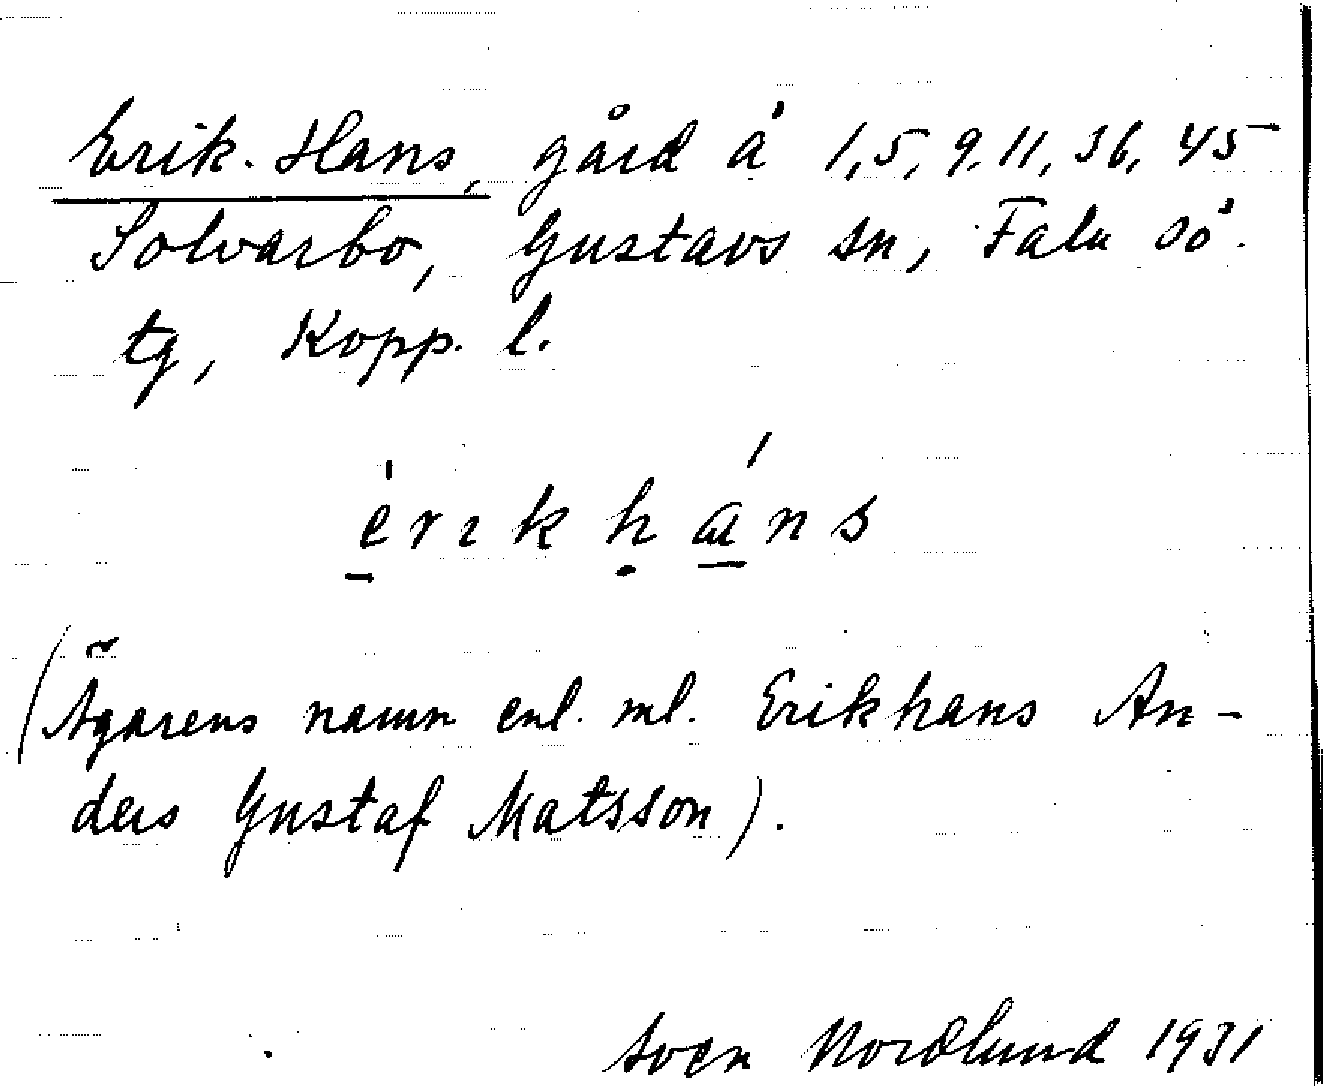 Erik-Hans, gård å 1, 5, 9, 11, 36, 45
Solvarbo, Gustavs sn, Falu sö.
tg, Kopp. l.
èrɩk háns
(Ägarens namn enl. ml. Erikhans An-
ders Gustaf Matsson).
Sven Nordlund 1931